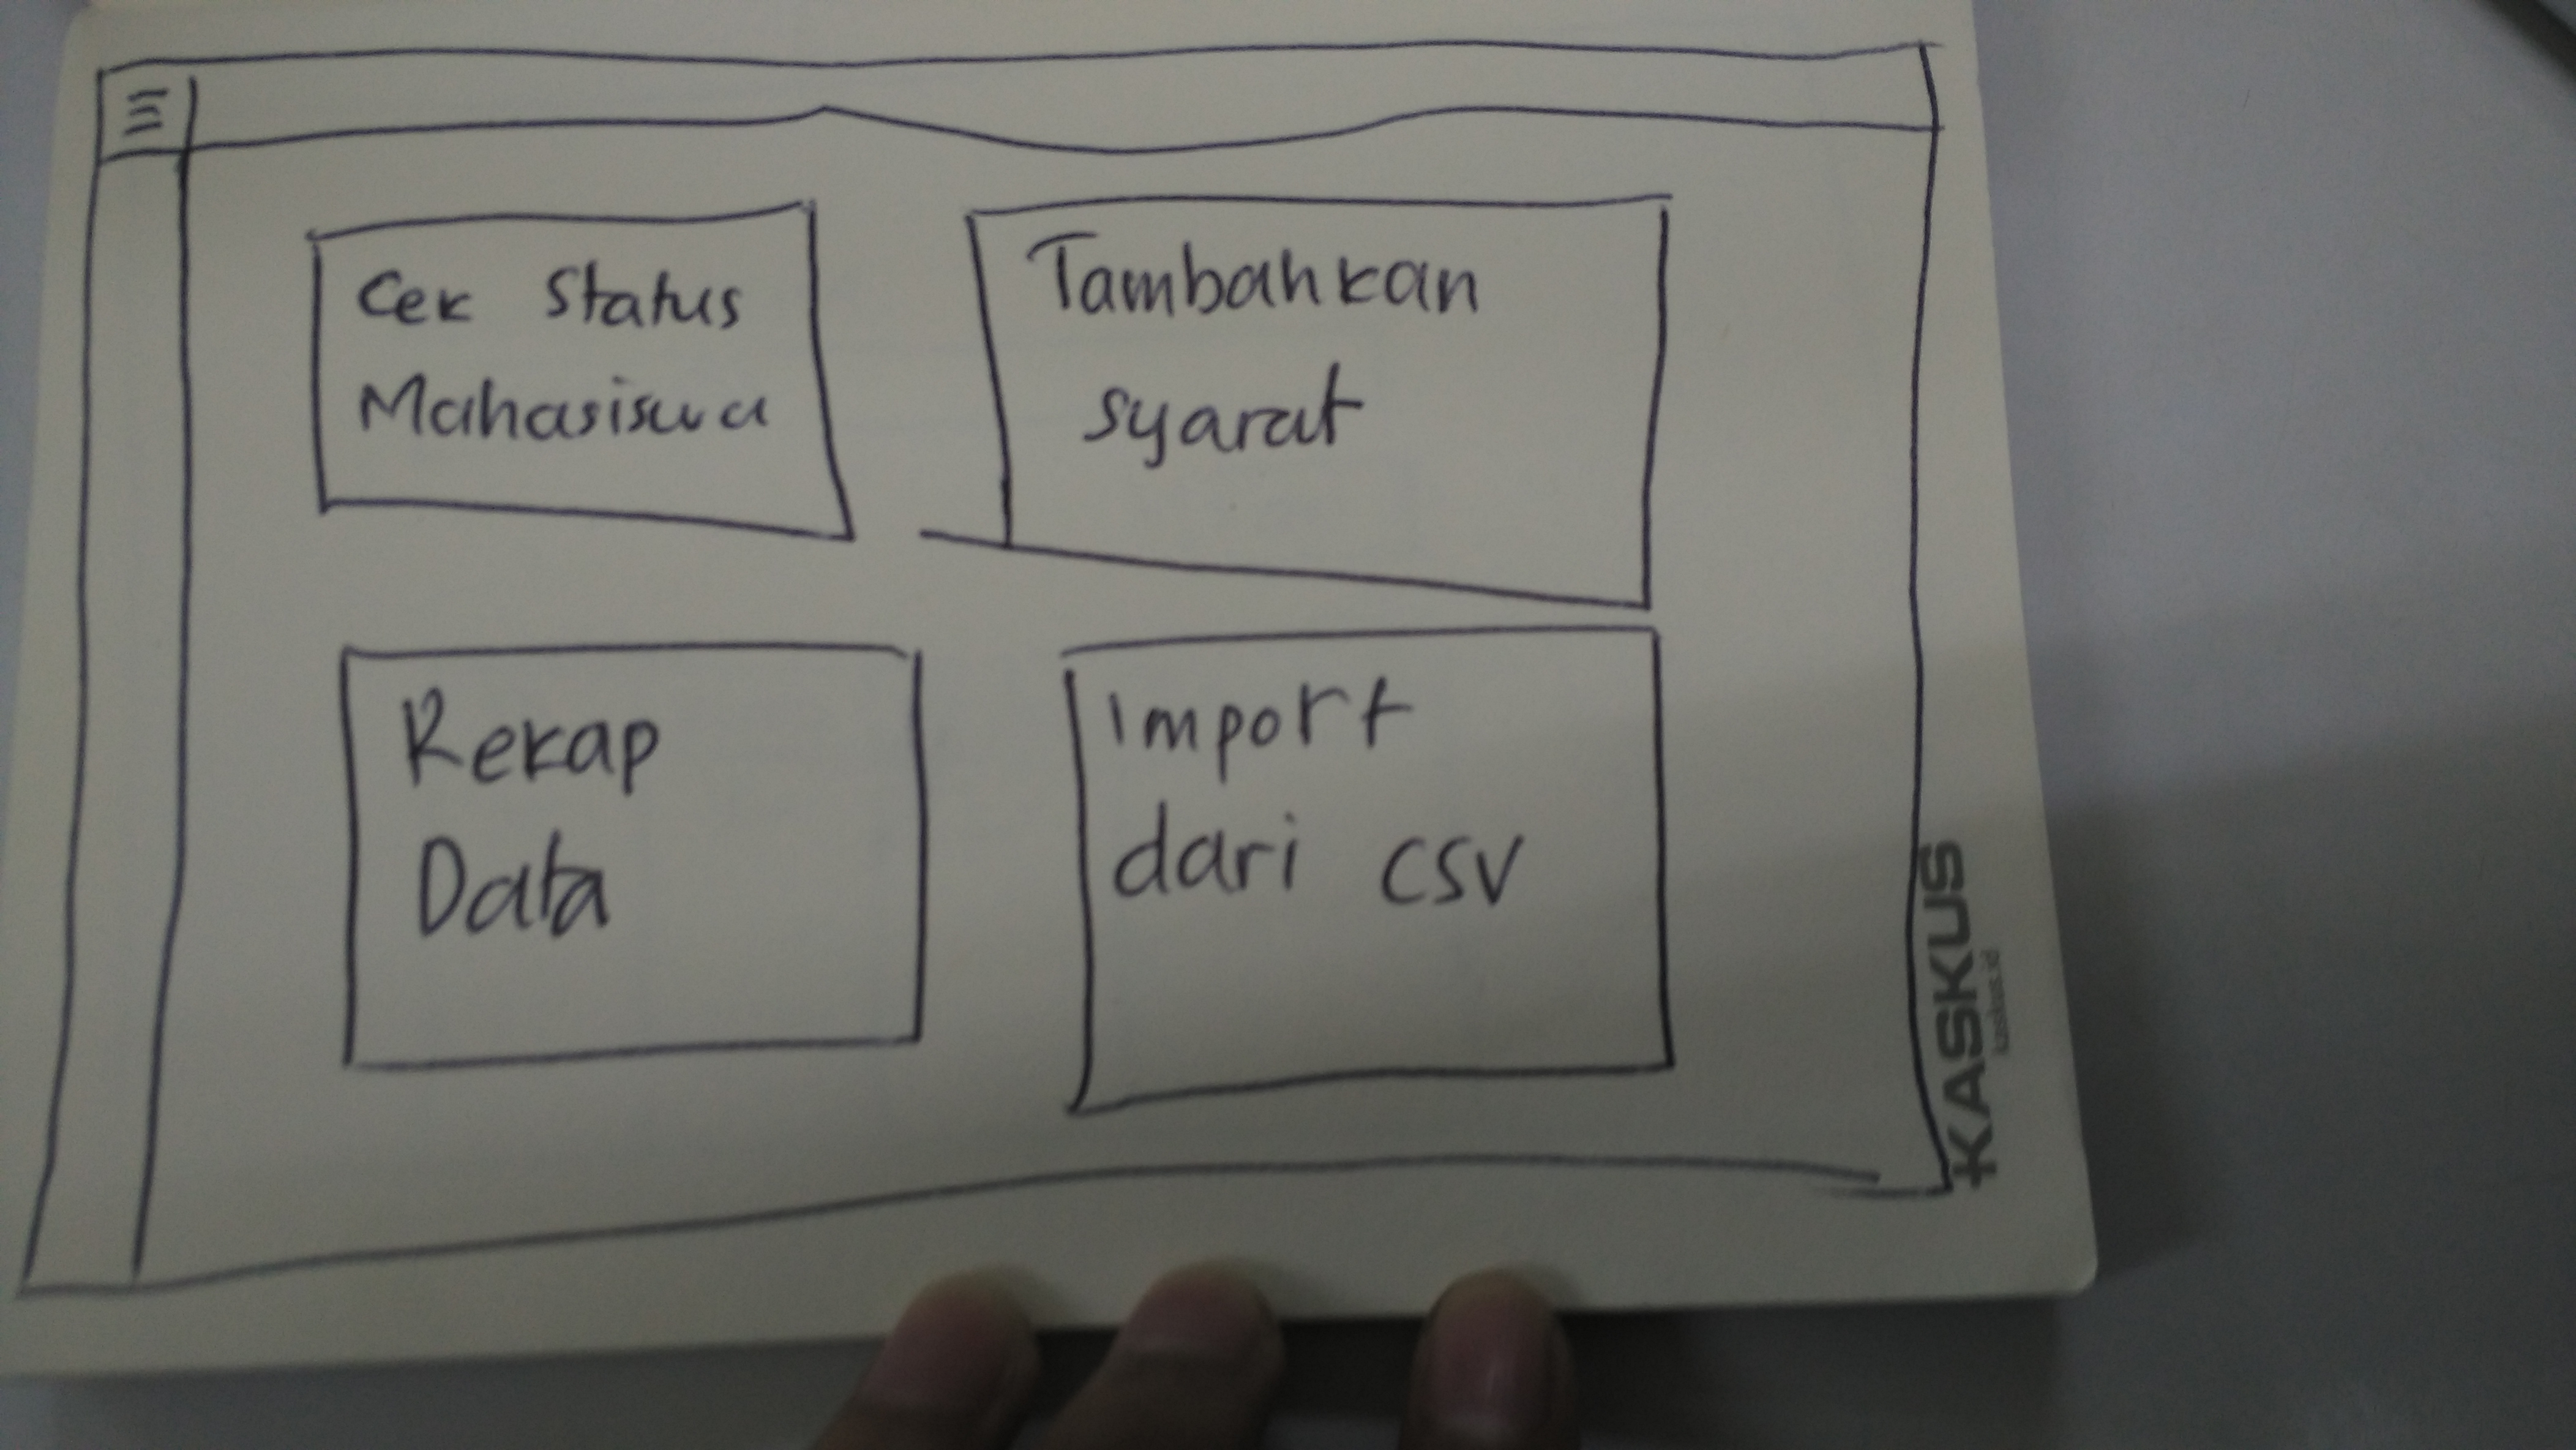 Cek Status
Mahasiswa
Tambahkan
syarat
Rekap
Data
Import
dari CSV
KASKUS
kaskus.id